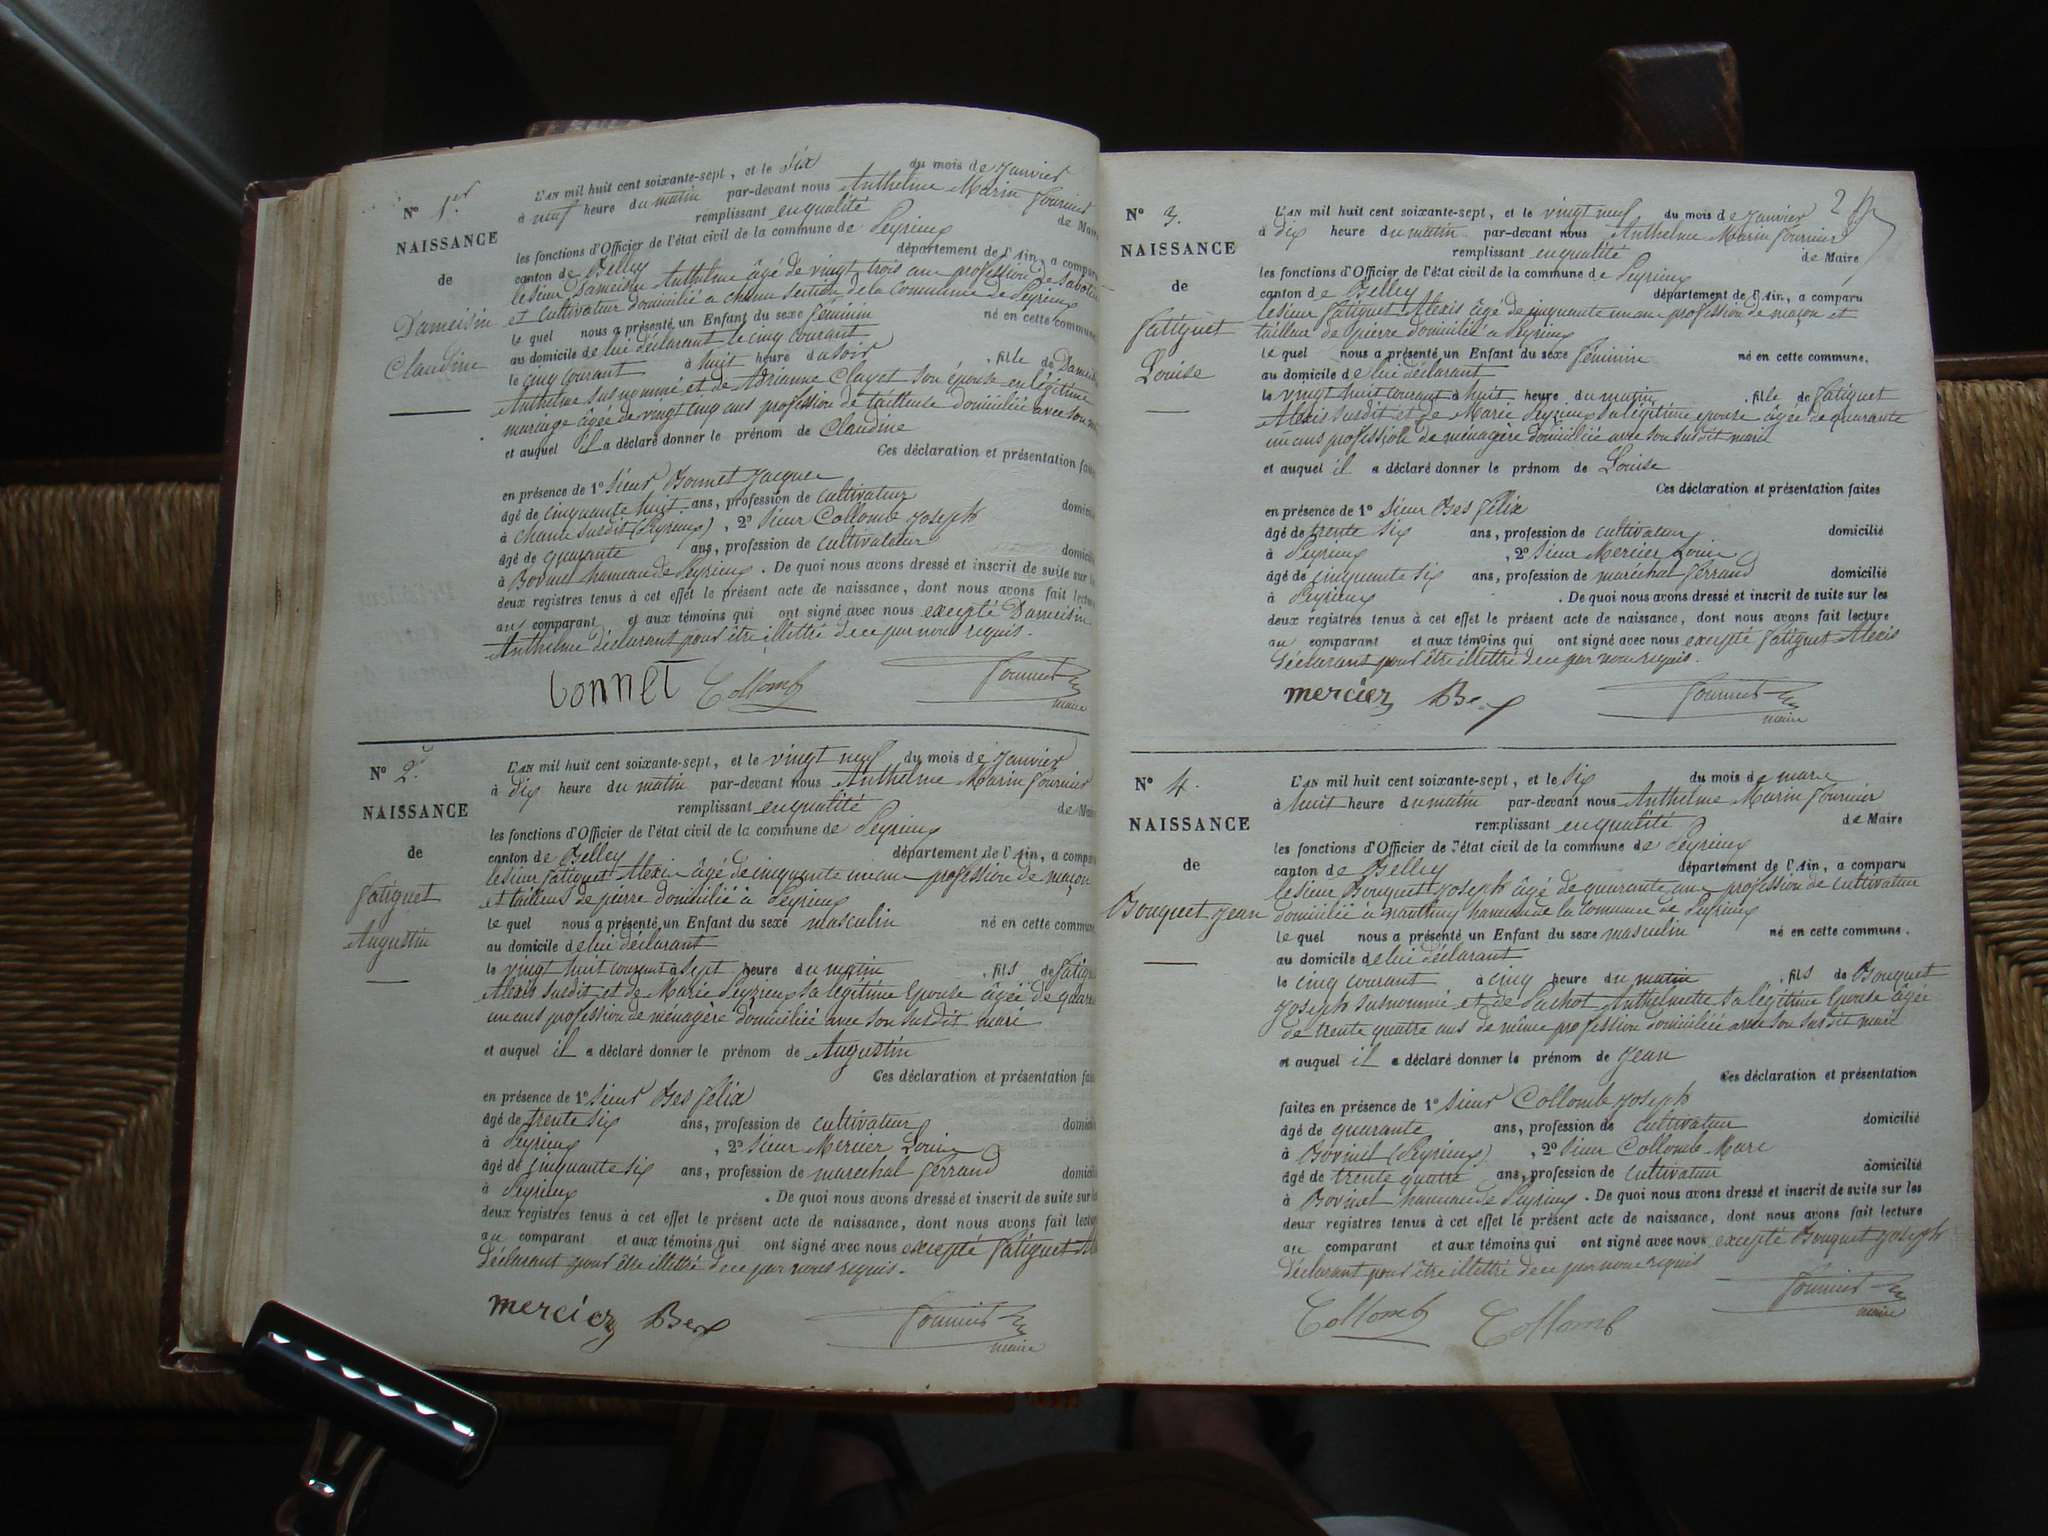 N° 1er
NAISSANCE
de
Dameisin
Claudine
L'AN mil huit cent soixante-sept, et le six du mois de Janvier
à neuf heure du matin par-devant nous Anthelme Marin Fournier
remplissant en qualité de Maire
les fonctions d'Officier de l'état civil de la commune de Peyrieux
canton de Belley département de l'Ain, a comparu
le sieur Dameisin Anthelme âgé de vingt trois ans profession de Sabotier
et cultivateur domicilié a section de la Commune de Peyrieux
le quel nous a présenté un Enfant du sexe féminin né en cette commune
au domicile de lui déclarant le cinq courant
le cinq courant à huit heure du soir, fille de Dameisin
Anthelme susnommé et de Adrianne Clayet son épouse en légitime
mariage âgée de vingt cinq ans profession de tailleuse domiciliée avec son
et auquel il a déclaré donner le prénom de Claudine
Ces déclaration et présentation faites
en présence de 1° Sieur Bonnet Jacques
âgé de cinquante huit ans, profession de cultivateur domicilié
à susdit (Peyrieux), 2° Sieur Collomb Joseph
âgé de quarante ans, profession de cultivateur domicilié
à Bovinel hameau de Peyrieux. De quoi nous avons dressé et inscrit de suite sur les
deux registres tenus à cet effet le présent acte de naissance, dont nous avons fait lecture
au comparant et aux témoins qui ont signé avec nous excepté Dameisin
Anthelme déclarant pour être illettré de ce par nous requis.
bonnet Collomb Fournier
maire
N° 2d
NAISSANCE
de
Fatiguet
Augustin
L'AN mil huit cent soixante-sept, et le vingt neuf du mois de Janvier
à dix heure du matin par-devant nous Anthelme Marin Fournier
remplissant en qualité de Maire
les fonctions d'Officier de l'état civil de la commune de Peyrieux
canton de Belley département de l'Ain, a comparu
le sieur Fatiguet Alexis âgé de cinquante un ans profession de maçon
et tailleur de pierre domicilié à Peyrieux
le quel nous a présenté un Enfant du sexe masculin né en cette commune
au domicile de lui déclarant
le vingt huit courant à sept heure du matin, fils de Fatiguet
Alexis susdit et de Marie Peyrieux sa légitime épouse âgée de quarante
un ans profession de ménagère domiciliée avec son susdit mari
et auquel il a déclaré donner le prénom de Augustin
Ces déclaration et présentation faites
en présence de 1° Sieur Bes Félix
âgé de trente six ans, profession de cultivateur domicilié
à Peyrieux, 2° Sieur Mercier Louis
âgé de cinquante six ans, profession de maréchal ferrand domicilié
à Peyrieux. De quoi nous avons dressé et inscrit de suite sur les
deux registres tenus à cet effet le présent acte de naissance, dont nous avons fait lecture
au comparant et aux témoins qui ont signé avec nous excepté Fatiguet
déclarant pour être illettré de ce par nous requis.
mercier Bes Fournier
maire
2
N° 3.
NAISSANCE
de
Fatiguet
Louise
L'AN mil huit cent soixante-sept, et le vingt neuf du mois de Janvier
à dix heure du matin par-devant nous Anthelme Marin Fournier
remplissant en qualité de Maire
les fonctions d'Officier de l'état civil de la commune de Peyrieux
canton de Belley département de l'Ain, a comparu
le sieur Fatiguet Alexis âgé de cinquante un ans profession de maçon et
tailleur de pierre domicilié à Peyrieux
le quel nous a présenté un Enfant du sexe féminin né en cette commune.
au domicile de lui déclarant
le vingt huit courant à huit heure du matin, fille de Fatiguet
Alexis susdit et de Marie Peyrieux sa légitime épouse âgée de quarante
un ans profession de ménagère domiciliée avec son susdit mari
et auquel il a déclaré donner le prénom de Louise
Ces déclaration et présentation faites
en présence de 1° Sieur Bes Félix
âgé de trente six ans, profession de cultivateur domicilié
à Peyrieux, 2° Sieur Mercier Louis
âgé de cinquante six ans, profession de maréchal ferrand domicilié
à Peyrieux. De quoi nous avons dressé et inscrit de suite sur les
deux registres tenus à cet effet le présent acte de naissance, dont nous avons fait lecture
au comparant et aux témoins qui ont signé avec nous excepté Fatiguet Alexis
déclarant pour être illettré de ce par nous requis.
mercier Bes Fournier
maire
N° 4.
NAISSANCE
de
Bouquet Jean
L'AN mil huit cent soixante-sept, et le six du mois de mars
à huit heure du matin par-devant nous Anthelme Marin Fournier
remplissant en qualité de Maire
les fonctions d'Officier de l'état civil de la commune de Peyrieux
canton de Belley département de l'Ain, a comparu
le sieur Bouquet Joseph âgé de quarante ans profession de cultivateur
domicilié à hameau de la commune de Peyrieux
le quel nous a présenté un Enfant du sexe masculin né en cette commune.
au domicile de lui déclarant
le cinq courant à cinq heure du matin, fils de Bouquet
Joseph susnommé et de Pachot Anthelmette sa légitime épouse âgée
de trente quatre ans de même profession domiciliée avec son susdit mari
et auquel il a déclaré donner le prénom de Jean
Ces déclaration et présentation
faites en présence de 1° Sieur Collomb Joseph
âgé de quarante ans, profession de cultivateur domicilié
à Bovinel (Peyrieux), 2° Sieur Collomb Marc
âgé de trente quatre ans, profession de cultivateur domicilié
à Bovinel hameau de Peyrieux. De quoi nous avons dressé et inscrit de suite sur les
deux registres tenus à cet effet le présent acte de naissance, dont nous avons fait lecture
au comparant et aux témoins qui ont signé avec nous excepté Bouquet Joseph
déclarant pour être illettré de ce par nous requis
Collomb Collomb Fournier
maire